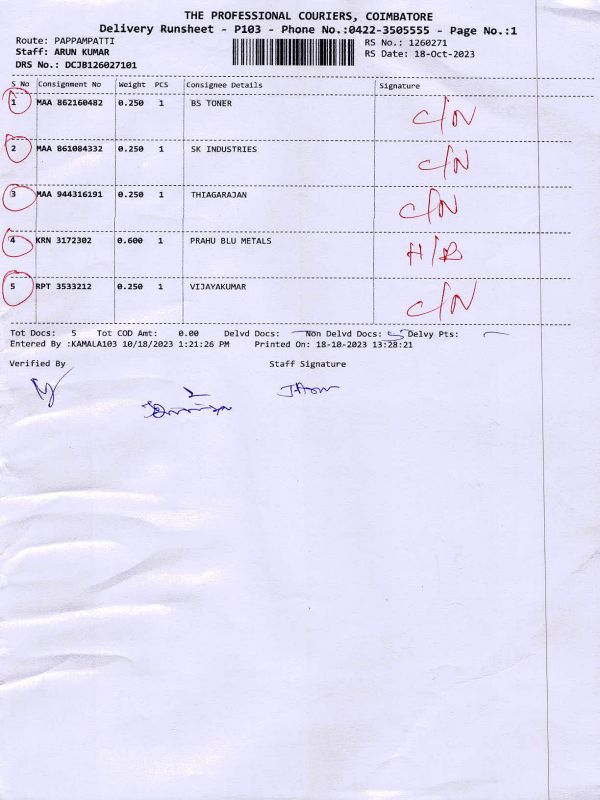 THE PROFESSIONAL COURIERS, COIMBATORE
Delivery Runsheet - P103 - Phone No.:0422-3505555 - Page No.:1
Route: PAPPAMPATTI RS No.: 1260271
Staff: ARUN KUMAR RS Date: 18-Oct-2023
DRS No.: DCJB126027101
S No Consignment No Weight PCS Consignee Details Signature
1 MAA 862160482 0.250 1 BS TONER C/N
2 MAA 861084332 0.250 1 SK INDUSTRIES C/N
3 MAA 944316191 0.250 1 THIAGARAJAN C/N
4 KRN 3172302 0.600 1 PRAHU BLU METALS H/B
5 RPT 3533212 0.250 1 VIJAYAKUMAR C/N
Tot Docs: 5 Tot COD Amt: 0.00 Delvd Docs: — Non Delvd Docs: 5 Delvy Pts: —
Entered By :KAMALA103 10/18/2023 1:21:26 PM Printed On: 18-10-2023 13:28:21
Verified By Staff Signature